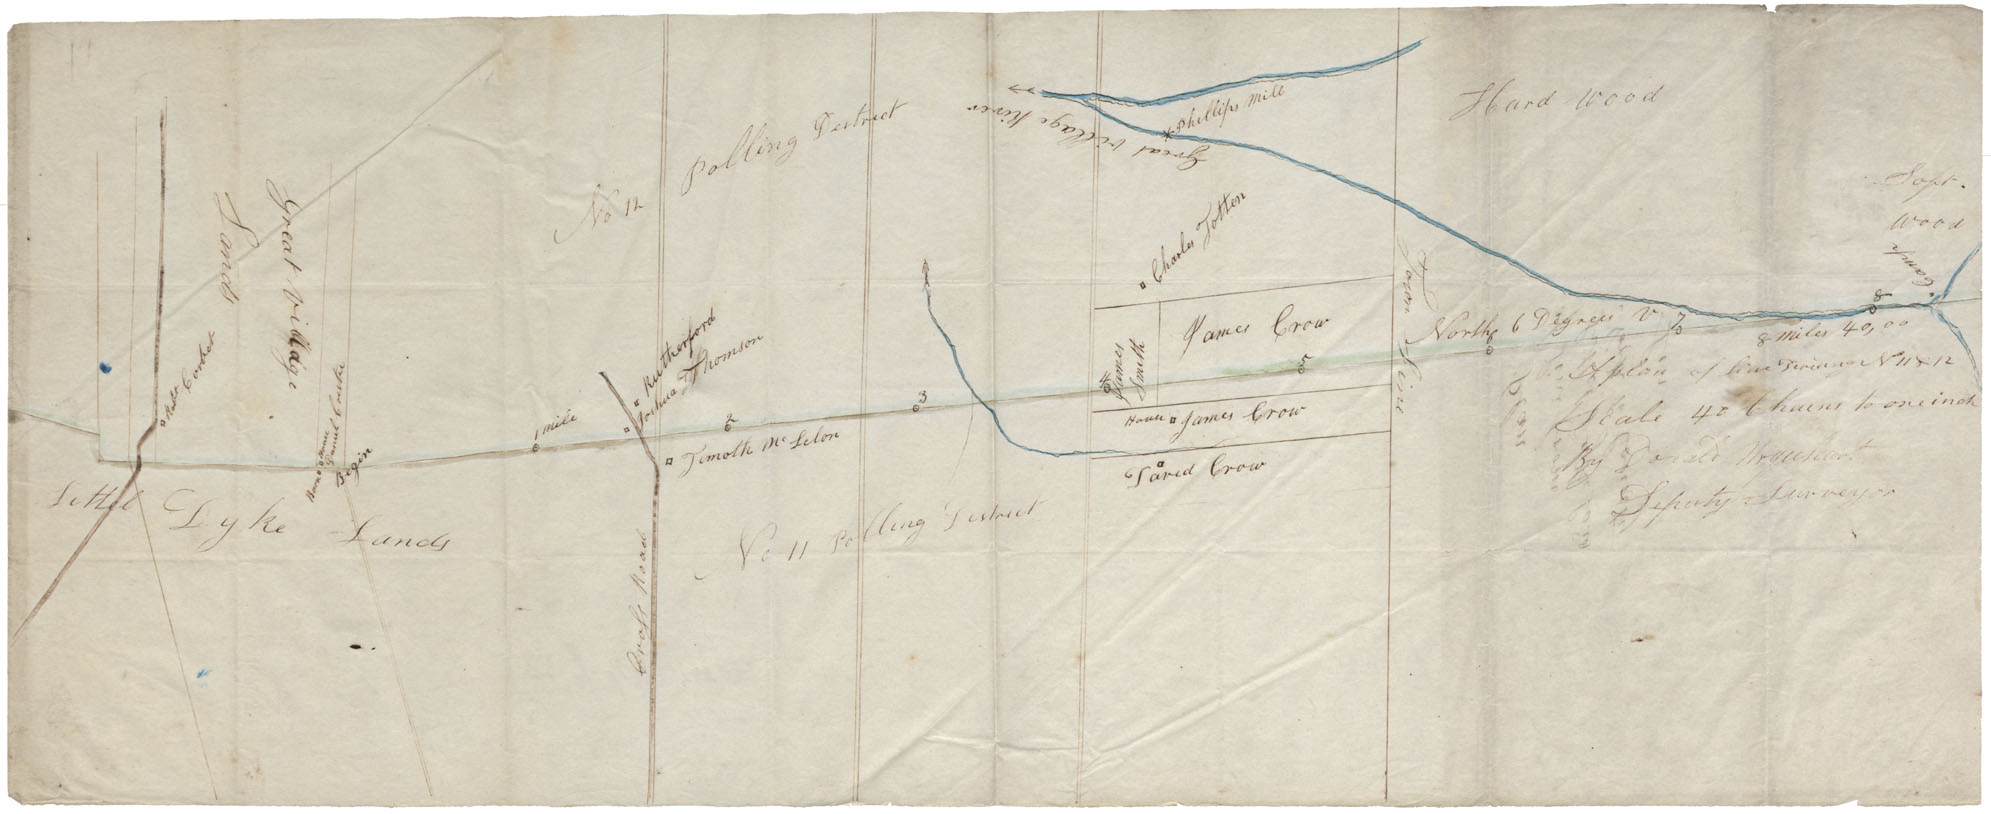 Great Villdge
Lands
Robt Corbet
Daniel Cooke
House
Begin
Littel Dyke Lands
1 mile
No 12 Polling Destrict
Rutherford
Joshua Thomson
2
Timoth Mc Lelon
Cross Road
3
No 11 Polling Destrict
Great village River
Phillips Mill
Charles Totten
4
James Smith
James Crow
5
House James Crow
Tared Crow
Town Line
Hard Wood
Soft
Wood
Camp
North 6 Degrees
6
7
8
8 miles 40,00
A plan of line No 11 & 12
Skale 40 Chains to one inch
By Donald Urquhart
Deputy Surveyor